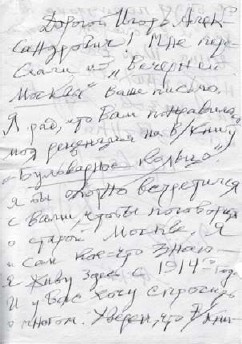 Дорогой Игорь Алек-
сандрович! Мне пере-
слали из „Вечерней
Москвы" Ваше письмо.
Я рад, что Вам понравилась
моя рецензия на в/книгу
„Бульварное кольцо".
Я бы охотно встретился
с Вами, чтобы поговорить
о старой Москве. Я
сам кое-что знаю -
я живу здесь с 1914 года.
И у Вас хочу спросить
о многом. Уверен, что